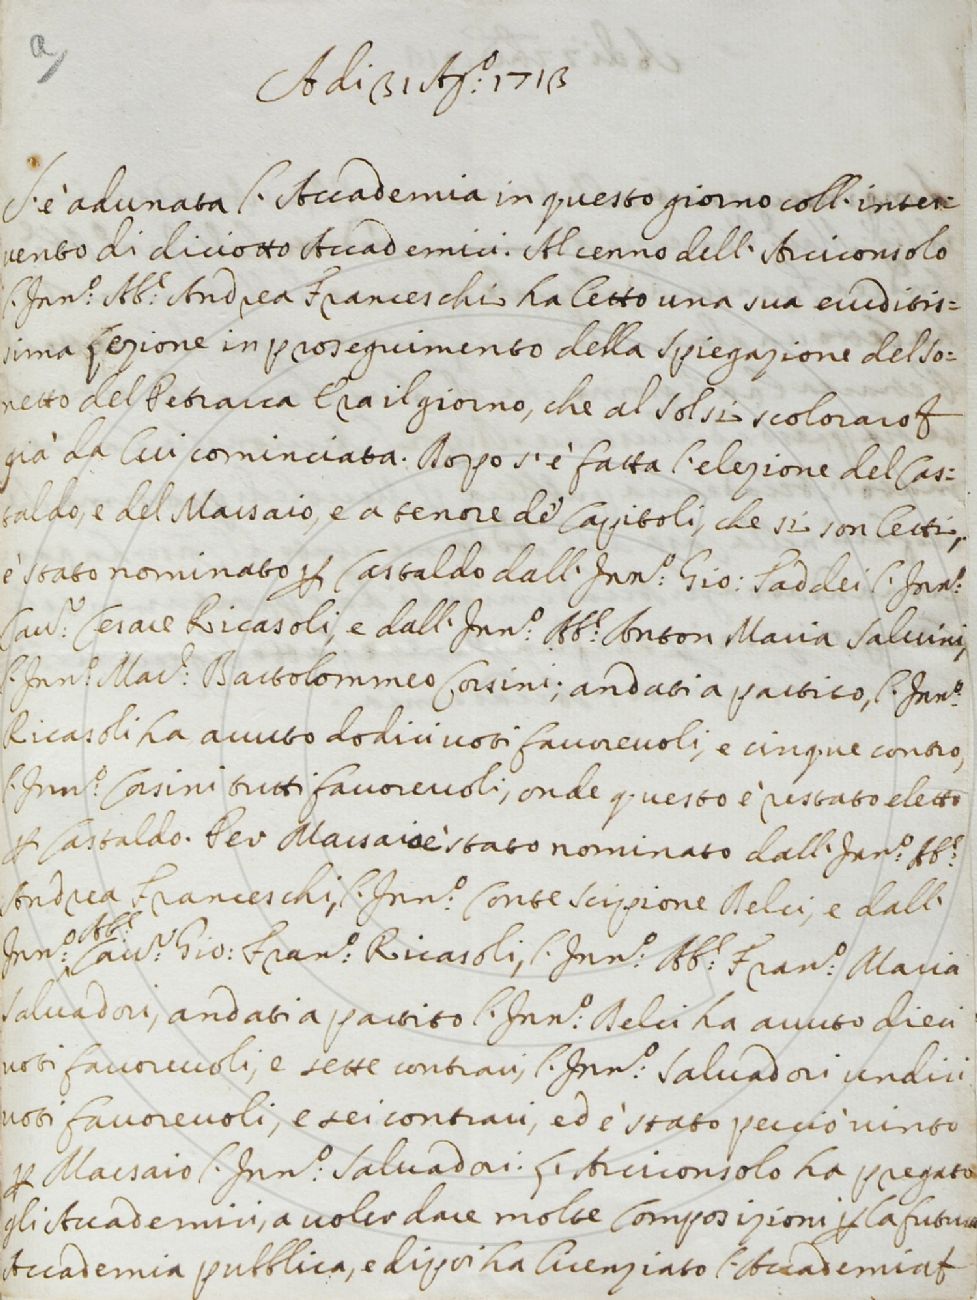 A di 31 Ag.º 1713
S'è adunata l'Accademia in questo giorno coll'inter=
vento di diciotto Accademici. Al cenno dell'Arciconsolo
l'Inn.º Ab.e Andrea Franceschi ha letto una sua eruditis=
sima Lezione in proseguimento della spiegazione del so=
netto del Petrarca Era il giorno, che al sol si scoloraro
già da lui cominciata. Dopo s'è fatta l'elezione del Cas=
taldo, e del Massaio, e a tenore de' Capitoli, che si son letti,
è stato nominato p Castaldo dall'Inn.º Gio: Taddei l'Inn.º
Cav.r Cesare Ricasoli, e dall'Inn.º Ab.e Anton Maria Salvini,
l'Inn.º Mar.e Bartolommeo Corsini; andati a partito, l'Inn.º
Ricasoli ha avuto dodici voti favorevoli, e cinque contro,
l'Inn.º Corsini tutti favorevoli, onde questo è restato eletto
p Castaldo. Per Massaio è stato nominato dall'Inn.º Ab.e
Andrea Franceschi, l'Inn.º Conte Scipione Belci, e dall'
Inn.º Ab.e Cav.r Gio: Fran.º Ricasoli, l'Inn.º Ab.e Fran.º Maria
Salvadori, andati a partito l'Inn.º Belci ha avuto dieci
voti favorevoli, e sette contrari, l'Inn.º Salvadori undici
voti favorevoli, e sei contrari, ed è stato perciò vinto
p Massaio l'Inn.º Salvadori. L'Arciconsolo ha pregato
gli Accademici, a voler dare molte Composizioni p la futura
Accademia pubblica, e dipoi ha licenziato l'Accademia